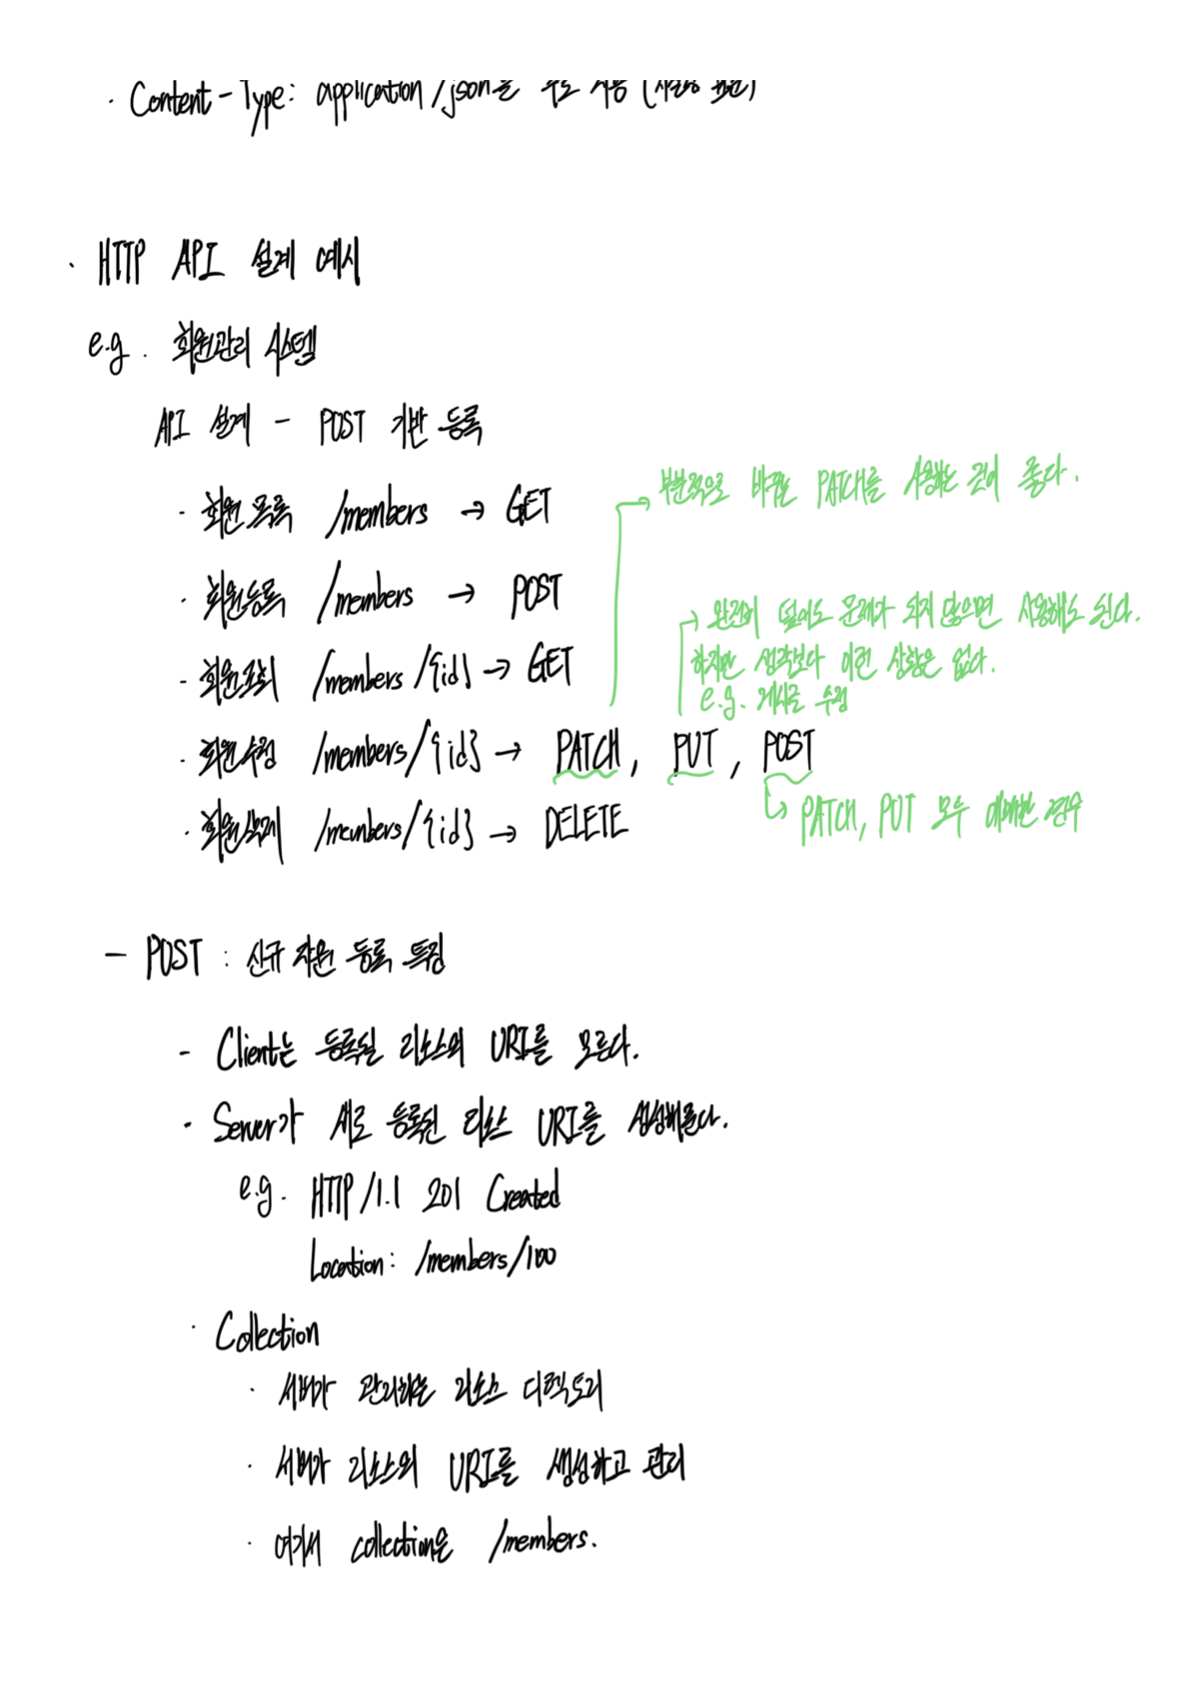 · Content-Type: application/json을 주로 사용 (사실상 표준)
· HTTP API 설계 예시
e.g. 회원관리 시스템
API 설계 - POST 기반 등록
· 회원 목록 /members → GET
· 회원등록 /members → POST
· 회원조회 /members/{id} → GET
· 회원수정 /members/{id} → PATCH, PUT, POST
· 회원삭제 /members/{id} → DELETE
→ 부분적으로 바뀌는 PATCH를 사용하는 것이 좋다.
→ 완전히 덮어도 문제가 되지 않으면 사용해도 된다.
하지만 생각보다 이런 상황은 없다.
e.g. 게시글 수정
↳ PATCH, PUT 모두 애매한 경우
- POST : 신규 자원 등록 특징
- Client는 등록될 리소스의 URI를 모른다.
· Server가 새로 등록된 리소스 URI를 생성해준다.
e.g. HTTP/1.1 201 Created
Location: /members/100
· Collection
· 서버가 관리하는 리소스 디렉토리
· 서버가 리소스의 URI를 생성하고 관리
· 여기서 collection은 /members.